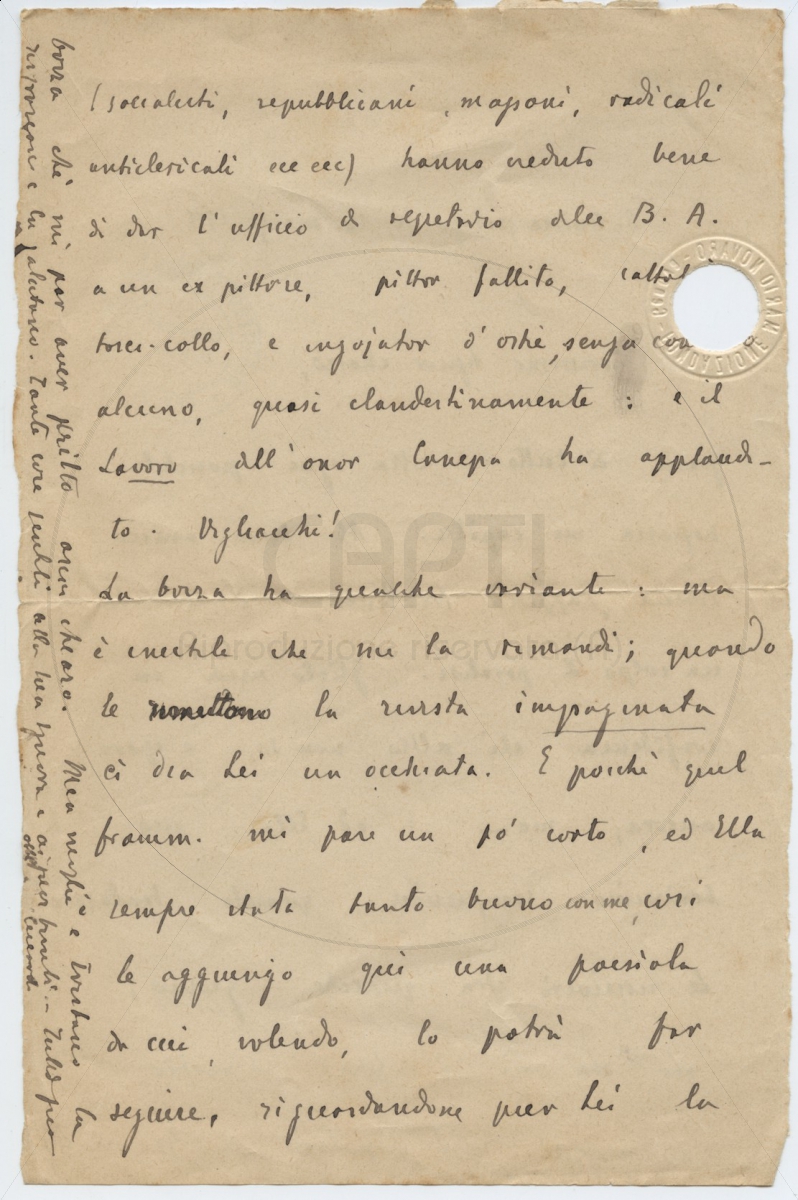 (socialisti, repubblicani, massoni, radicali
anticlericali ecc ecc) hanno creduto bene
di dar l'ufficio di segretario delle B. A.
a un ex pittore, pittor fallito,
torci-collo, e ingojator d'ostie, senza
alcuno, quasi clandestinamente: e il
Lavoro dell'onor Canepa ha applaudi-
to. Vigliacchi!
La bozza ha qualche variante: ma
è inutile che me la rimandi; quando
le rimettono la rivista impaginata
ci dia Lei un'occhiata. E poichè quel
framm. mi pare un pò corto, ed Ella
sempre stata tanto buono con me, così
le aggiungo qui una poesiola
da cui, volendo, lo potrà far
seguire, riguardandone pur Lei la
bozza chè mi par aver scritto assai chiaro. Mia moglie e Tristano la
riveriscono e la salutano. Tante cose gentili alla sua signora e ai suoi bimbi.
CAPTI
Riproduzione riservata
FONDAZIONE MARIO NOVARO